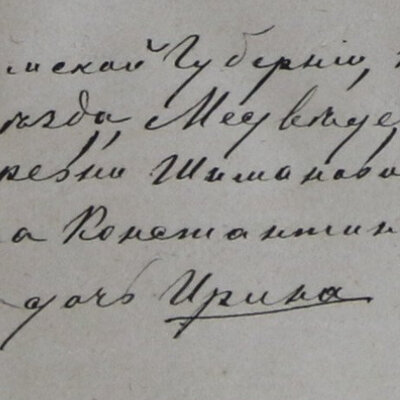 мской Губерніи,
уѣзда Медвѣде
ревни Шиманово
на Константин
дочь Ирина